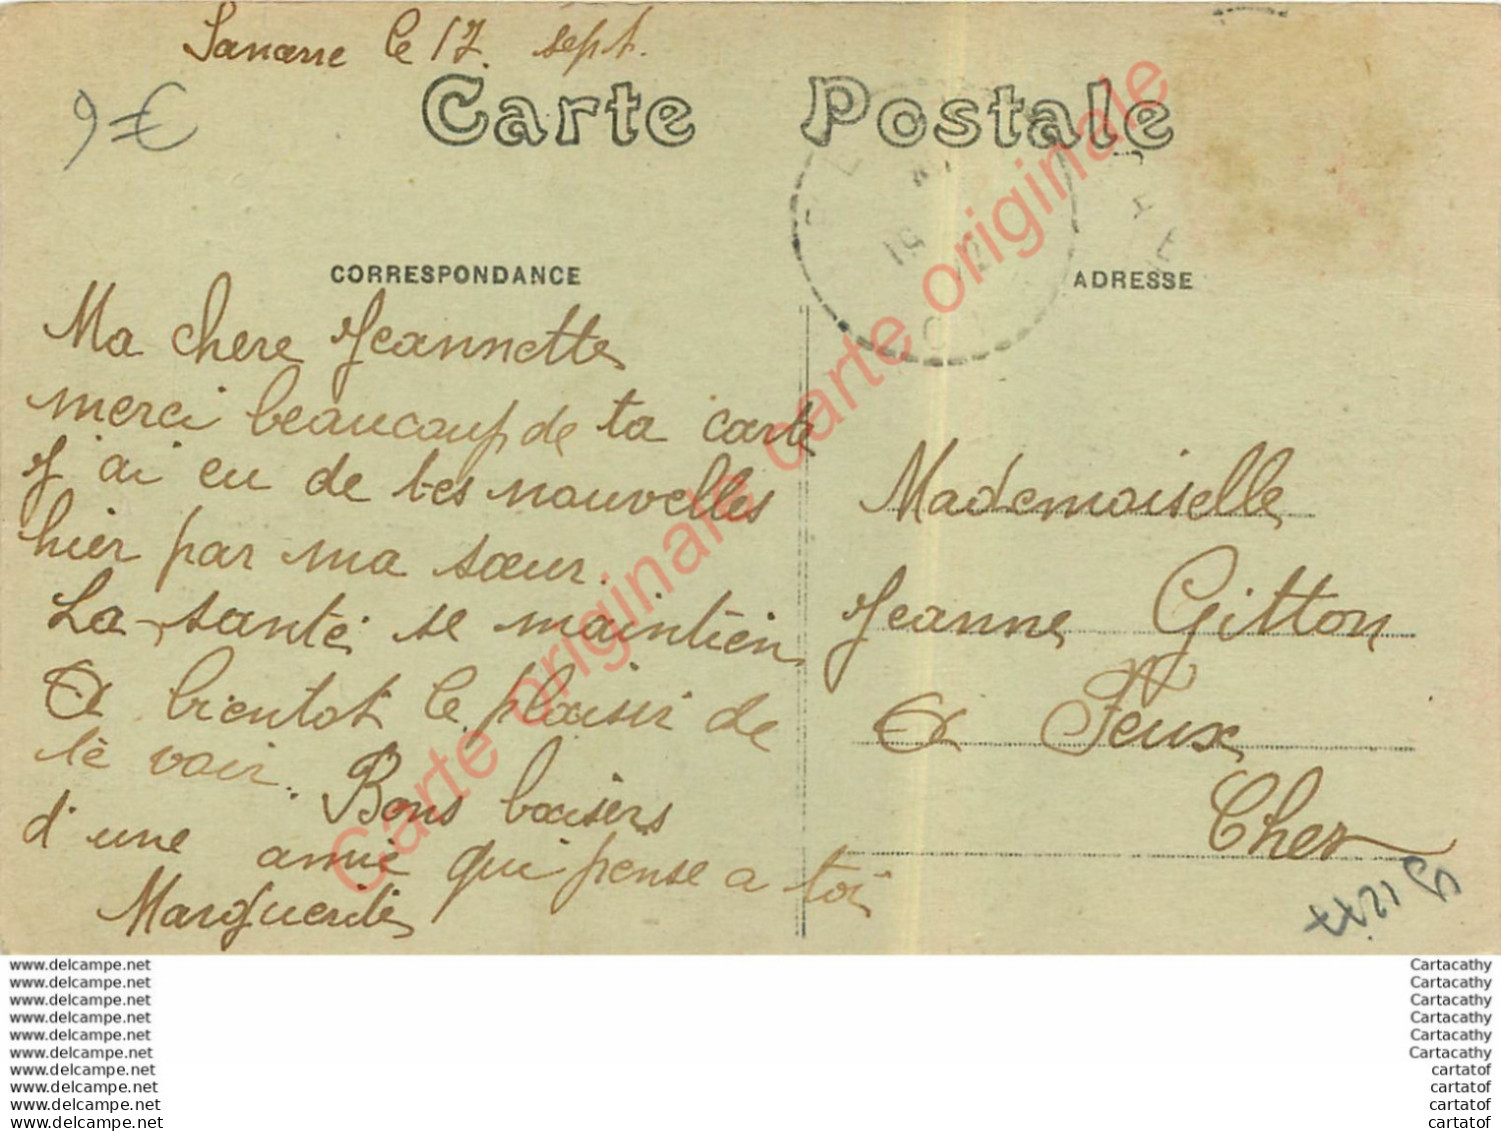 le 17. sept.
9 €
Carte Postale
CORRESPONDANCE
ADRESSE
Ma chere Jeannette
merci beaucoup de ta carte
J'ai eu de tes nouvelles
hier par ma sœur.
La santé se maintien
A bientot le plaisir de
te voir. Bons baisers
d'une amie qui pense a toi
Marguerite
Mademoiselle
Jeanne Gitton
A Feux
Cher
Carte originale carte originale carte originale
www.delcampe.net
www.delcampe.net
www.delcampe.net
www.delcampe.net
www.delcampe.net
www.delcampe.net
www.delcampe.net
www.delcampe.net
www.delcampe.net
www.delcampe.net
Cartacathy
Cartacathy
Cartacathy
Cartacathy
Cartacathy
Cartacathy
cartatof
cartatof
cartatof
cartatof